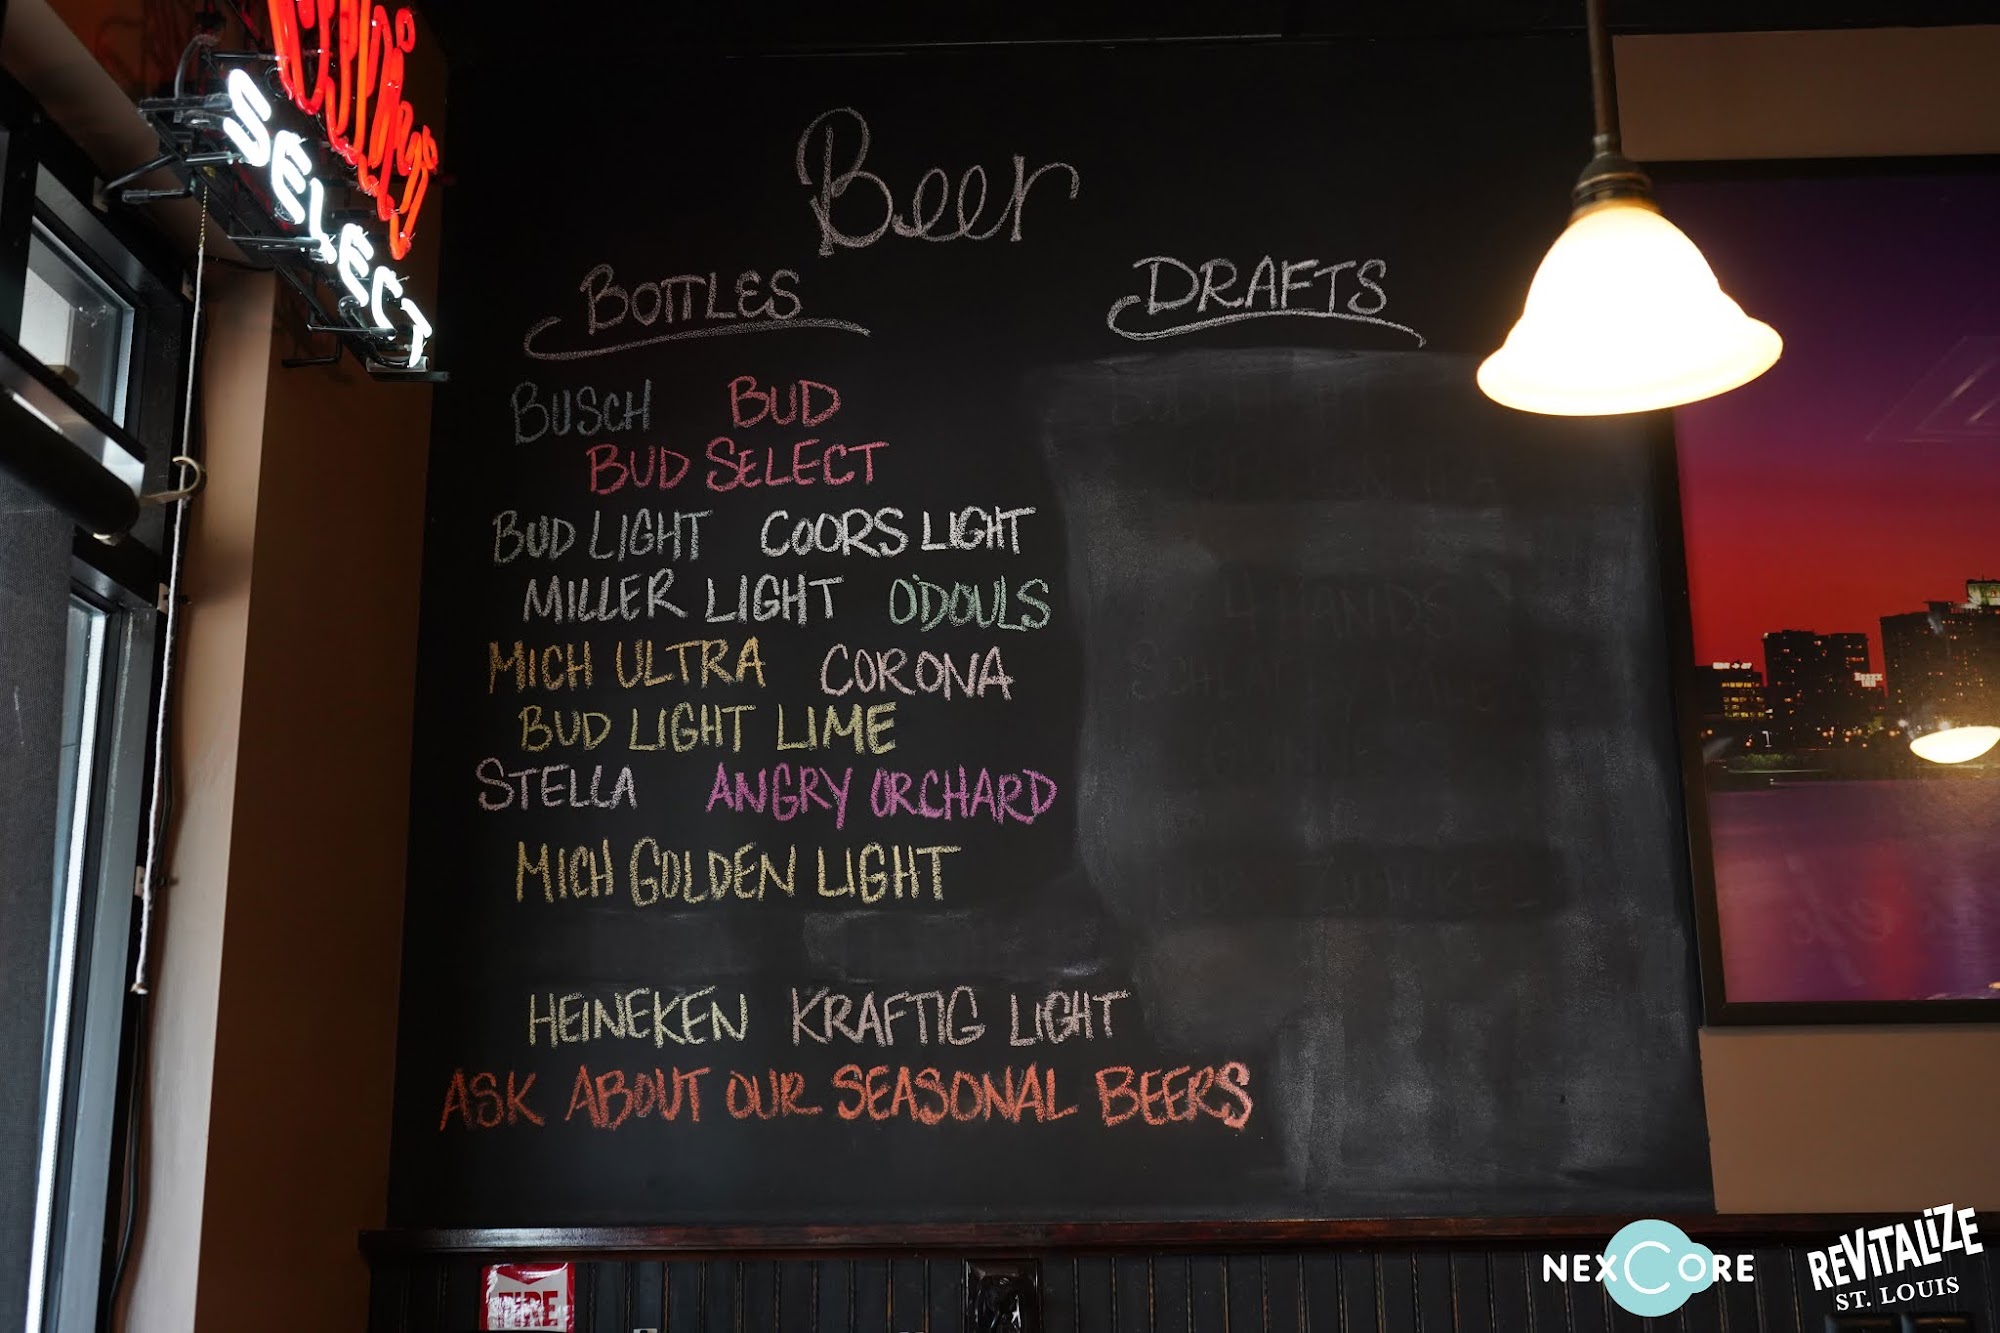 SELECT
Beer
BOTTLES
DRAFTS
BUSCH BUD
BUD SELECT
BUD LIGHT COORS LIGHT
MILLER LIGHT O'DOULS
MICH ULTRA CORONA
BUD LIGHT LIME
STELLA ANGRY ORCHARD
MICH GOLDEN LIGHT
HEINEKEN KRAFTIG LIGHT
ASK ABOUT OUR SEASONAL BEERS
4 HANDS
FIRE
NEXCORE
REVITALIZE
ST. LOUIS